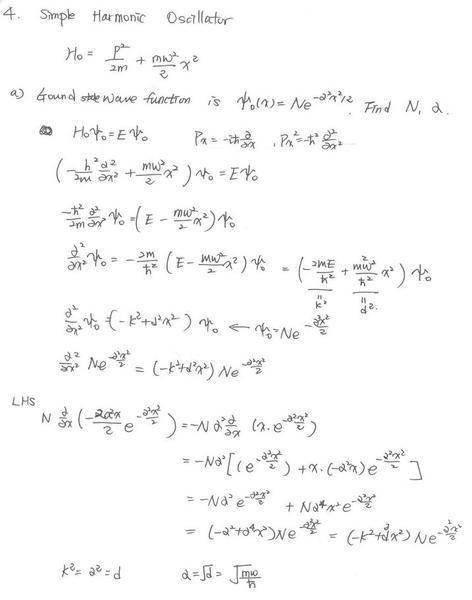 4. Simple Harmonic Oscillator
H₀ = P²/2m + mω²/2 x²
a) Ground wave function is ψ₀(x) = Ne^(-α²x²/2). Find N, α.
H₀ψ₀ = Eψ₀   Pₓ = -iħ ∂/∂x , Pₓ² = -ħ² ∂²/∂x²
(-ħ²/2m ∂²/∂x² + mω²/2 x²) ψ₀ = Eψ₀
-ħ²/2m ∂²/∂x² ψ₀ = (E - mω²/2 x²) ψ₀
∂²/∂x² ψ₀ = -2m/ħ² (E - mω²/2 x²) ψ₀ = (-2mE/ħ² + m²ω²/ħ² x²) ψ₀
" k²   " d²
∂²/∂x² ψ₀ = (-k² + d²x²) ψ₀ ← ψ₀ = Ne^(-α²x²/2)
∂²/∂x² Ne^(-α²x²/2) = (-k² + d²x²) Ne^(-α²x²/2)
LHS
N ∂/∂x (-2α²x/2 e^(-α²x²/2)) = -Nα² ∂/∂x (x·e^(-α²x²/2))
= -Nα² [(e^(-α²x²/2)) + x·(-α²x) e^(-α²x²/2)]
= -Nα² e^(-α²x²/2) + Nα⁴x² e^(-α²x²/2)
= (-α² + α⁴x²) Ne^(-α²x²/2) = (-k² + d²x²) Ne^(-α²x²/2)
k² = α² = d   α = √d = √(mω/ħ)